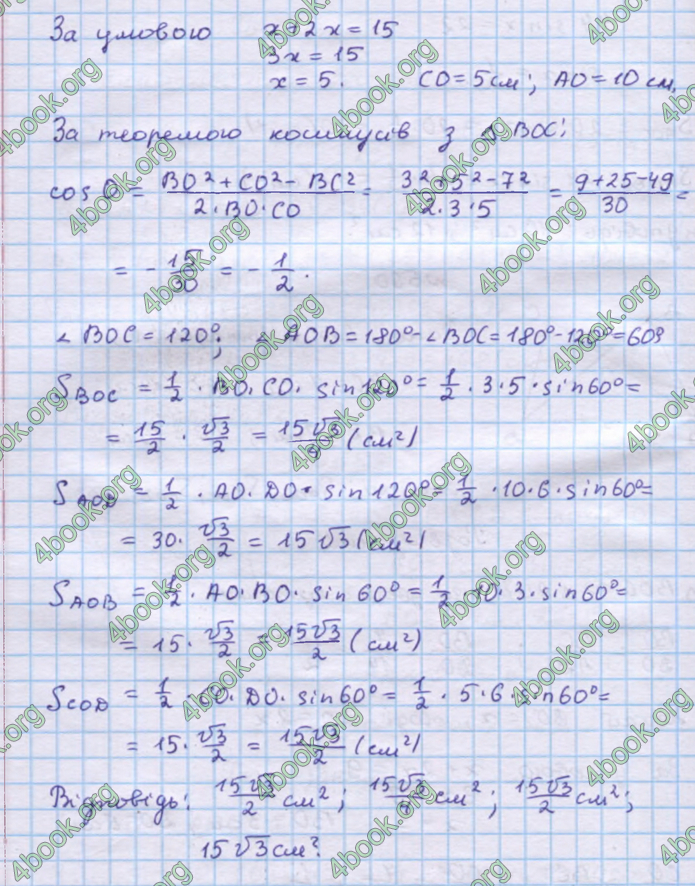 За умовою x+2x=15
3x=15
x=5. CO=5см; AO=10см.
За теоремою косинусів з △ BOC:
cos O = (BO²+CO²-BC²)/(2·BO·CO) = (3²+5²-7²)/(2·3·5) = (9+25-49)/30 =
= -15/30 = -1/2.
∠BOC=120°; ∠AOB=180°-∠BOC=180°-120°=60°
S_BOC = 1/2 · BO·CO· sin120°= 1/2 ·3·5·sin60°=
= 15/2 · √3/2 = 15√3/4 (см²)
S_AOD = 1/2 · AO·DO· sin120°= 1/2 ·10·6·sin60°=
= 30· √3/2 = 15√3 (см²)
S_AOB = 1/2 · AO·BO· sin 60° = 1/2 ·10·3·sin60°=
= 15· √3/2 = 15√3/2 (см²)
S_COD = 1/2 · CO·DO· sin60°= 1/2 ·5·6·sin60°=
= 15· √3/2 = 15√3/2 (см²)
Відповідь: 15√3/2 см²; 15√3/4 см²; 15√3/2 см²;
15√3 см².
4book.org